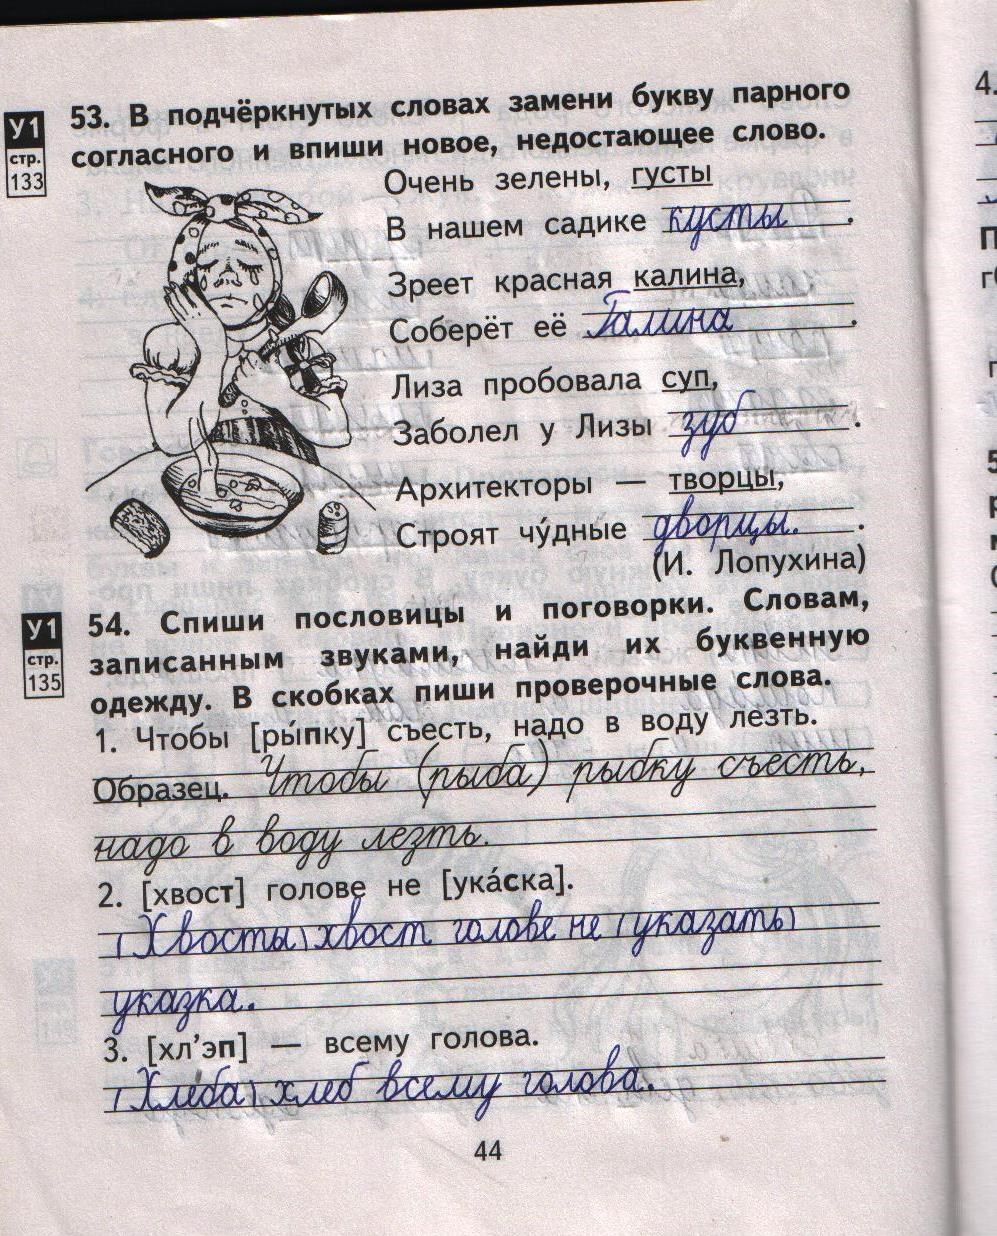 У1
стр.
133
53. В подчёркнутых словах замени букву парного
согласного и впиши новое, недостающее слово.
Очень зелены, густы
В нашем садике кусты.
Зреет красная калина,
Соберёт её Галина.
Лиза пробовала суп,
Заболел у Лизы зуб.
Архитекторы — творцы,
Строят чу́дные дворцы..
(И. Лопухина)
У1
стр.
135
54. Спиши пословицы и поговорки. Словам,
записанным звуками, найди их буквенную
одежду. В скобках пиши проверочные слова.
1. Чтобы [ры́пку] съесть, надо в воду лезть.
Образец. Чтобы (рыба) рыбку съесть,
надо в воду лезть.
2. [хвост] голове не [ука́ска].
(Хвосты) хвост голове не (указать)
указка.
3. [хл’эп] — всему голова.
(Хлеба) хлеб всему голова.
44
4.